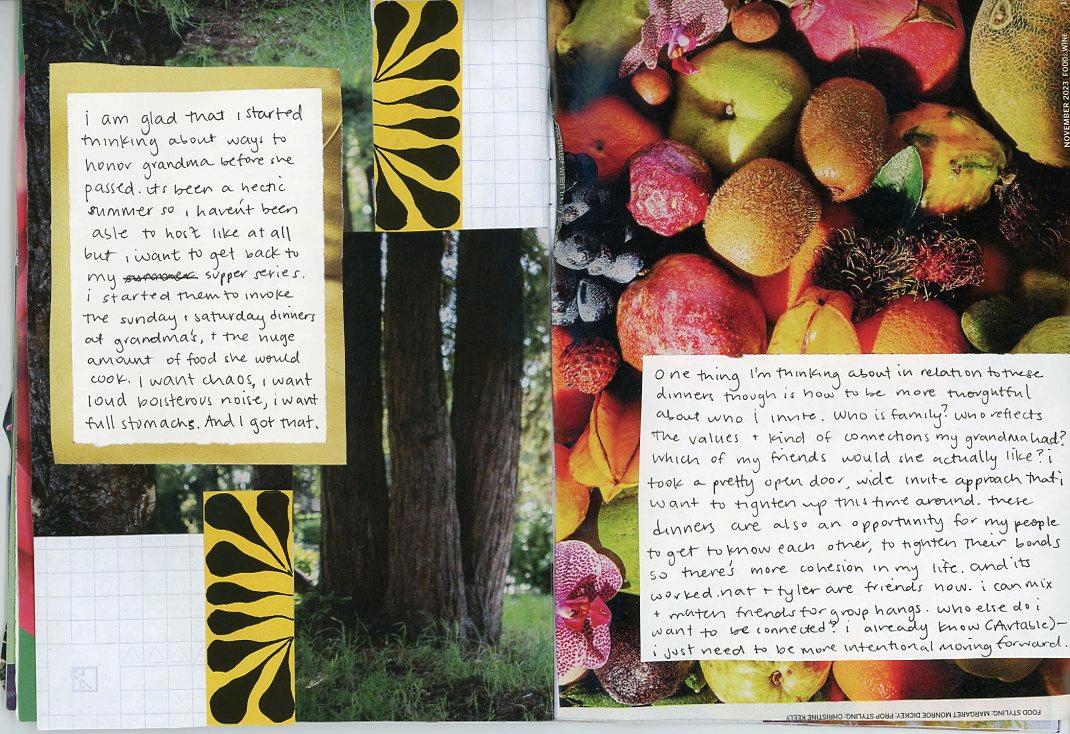 i am glad that i started
thinking about ways to
honor grandma before she
passed. its been a hectic
summer so i haven't been
able to host like at all
but i want to get back to
my summer supper series.
i started them to invoke
the sunday + saturday dinners
at grandma's, + the huge
amount of food she would
cook. I want chaos, i want
loud boisterous noise, i want
full stomachs. And I got that.
NOVEMBER 2023 FOOD & WINE
One thing I'm thinking about in relation to these
dinners though is how to be more thoughtful
about who i invite. Who is family? Who reflects
the values + kind of connections my grandma had?
Which of my friends would she actually like? i
took a pretty open door, wide invite approach that i
want to tighten up this time around. these
dinners are also an opportunity for my people
to get to know each other, to tighten their bonds
so there's more cohesion in my life. and its
worked. nat + tyler are friends now. i can mix
+ match friends for group hangs. who else do i
want to be connected? i already know (Airtable)–
i just need to be more intentional moving forward.
FOOD STYLING: MARGARET MONROE DICKEY; PROP STYLING: CHRISTINE KEELY